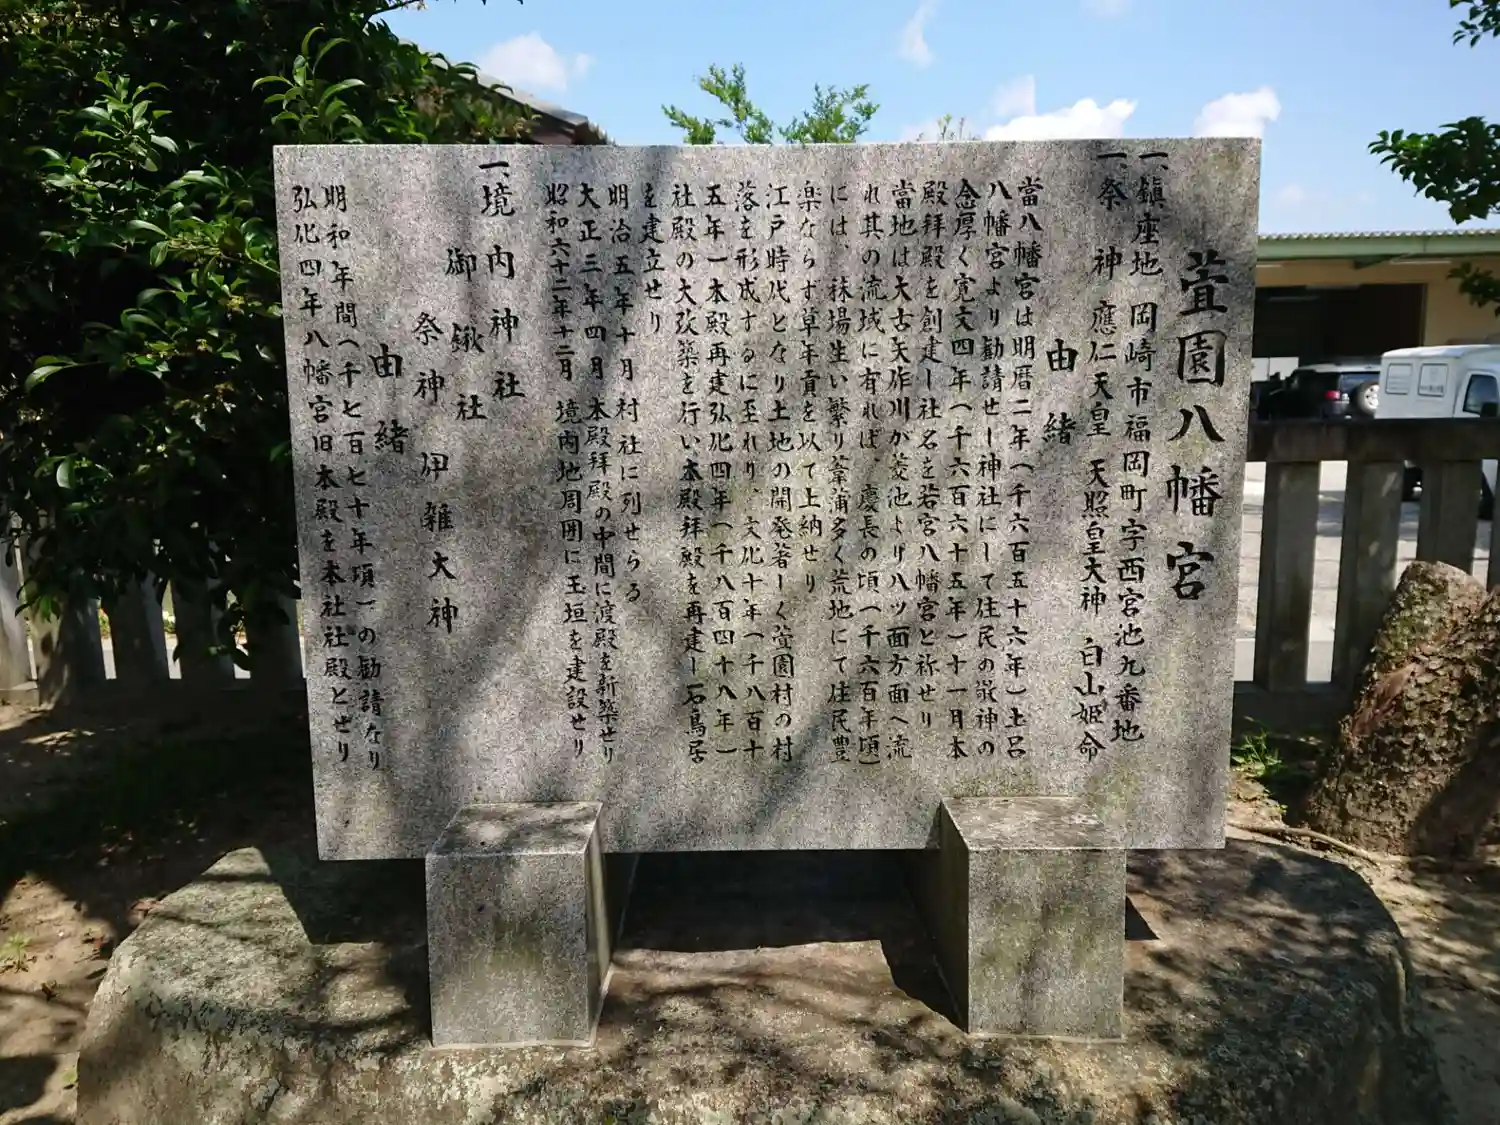 萱園八幡宮
一、鎮座地 岡崎市福岡町字西宮池九番地
一、祭神 應仁天皇 天照皇大神 白山姫命
由緒
當八幡宮は明暦二年(千六百五十六年)土呂
八幡宮より勧請せし神社にして住民の敬神の
念厚く寛文四年(千六百六十五年)十一月本
殿拝殿を創建し社名を若宮八幡宮と称せり
當地は大古矢作川が菱池より八ッ面方面へ流
れ其の流域に有れば、慶長の頃(千六百年頃)
には、秣場生い繁り葦蒲多く荒地にて住民豊
楽ならず草年貢を以て上納せり
江戸時代となり土地の開発著しく萱園村の村
落を形成するに至れり、文化十年(千八百十
五年)本殿再建弘化四年(千八百四十八年)
社殿の大改築を行い本殿拝殿を再建し石鳥居
を建立せり
明治五年十月村社に列せらる
大正三年四月本殿拝殿の中間に渡殿を新築せり
昭和六十二年十二月 境内地周囲に玉垣を建設せり
一、境内神社
御鍬社
祭神 伊雑大神
由緒
明和年間(千七百七十年頃)の勧請なり
弘化四年八幡宮旧本殿を本社社殿とせり